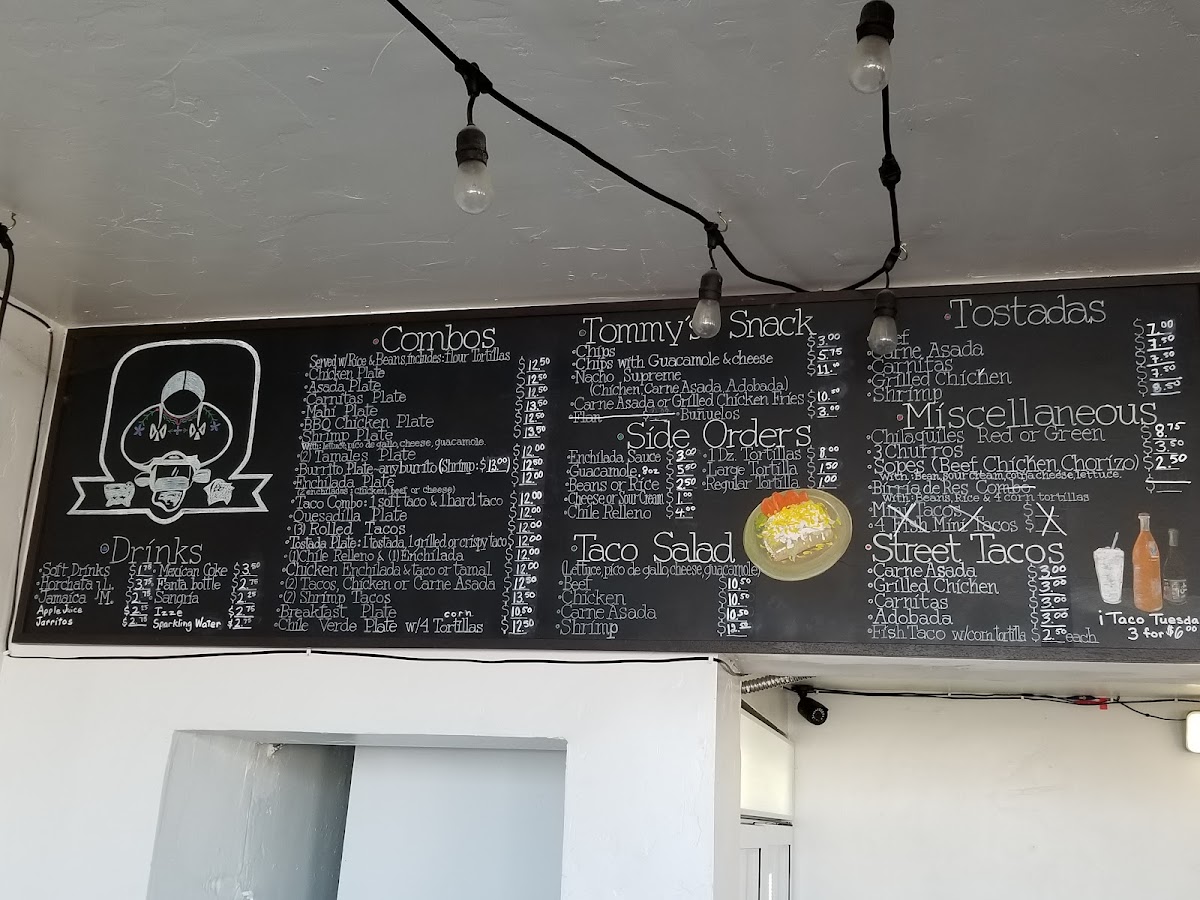 Drinks
Soft Drinks $1.75
Horchata L. $3.75
Jamaica M. $2.75
Apple Juice $2.25
Jarritos $2.75
Mexican Coke $3.50
Fanta bottle $2.75
Sangria $2.25
Izze $2.75
Sparkling Water $2.75
Combos
Served w/Rice & Beans, includes: flour Tortillas
Chicken Plate $12.50
Asada Plate $12.50
Carnitas Plate $12.50
Mahi Plate $13.50
BBQ Chicken Plate $12.50
Shrimp Plate $13.50
With lettuce, pico de gallo, cheese, guacamole.
(2) Tamales Plate $12.00
Burrito Plate-any burrito (Shrimp: $13.00) $12.50
Enchilada Plate $12.00
(2 enchiladas: chicken, beef or cheese)
Taco Combo: 1 soft taco & 1 hard taco $12.00
Quesadilla Plate $12.00
(3) Rolled Tacos $12.00
Tostada Plate: 1 tostada, 1 grilled or crispy taco $12.00
(1) Chile Relleno & (1) Enchilada $12.00
Chicken Enchilada & taco or tamal $12.00
(2) Tacos, Chicken or Carne Asada $12.50
(2) Shrimp Tacos $13.50
Breakfast Plate $10.50
corn
Chile Verde Plate w/4 Tortillas $12.50
Tommy's Snack
Chips $3.00
Chips with Guacamole & cheese $5.75
Nacho Supreme $11.00
(Chicken, Carne Asada, Adobada)
Carne Asada or Grilled Chicken Fries $10.50
Flan Buñuelos $3.00
Side Orders
Enchilada Sauce $3.00
Guacamole, 8oz $5.50
Beans or Rice $2.50
Cheese or Sour Cream $1.00
Chile Relleno $4.00
1 Dz. Tortillas $8.00
Large Tortilla $1.50
Regular Tortilla $1.00
Taco Salad
(Lettuce, pico de gallo, cheese, guacamole)
Beef $10.50
Chicken $10.50
Carne Asada $10.50
Shrimp $12.50
Tostadas
Beef $7.00
Carne Asada $7.50
Carnitas $7.50
Grilled Chicken $7.50
Shrimp $8.50
Miscellaneous
Chilaquiles Red or Green $8.75
3 Churros $3.50
Sopes (Beef Chicken Chorizo) $2.50
with: Bean, sour cream, cotija cheese, lettuce.
Birria de Res Combo $
with: Beans, Rice & corn tortillas
Mini Tacos $
4 Fish Mini Tacos $
Street Tacos
Carne Asada $3.00
Grilled Chicken $3.00
Carnitas $3.00
Adobada $3.00
Fish Taco w/corn tortilla $2.50 each
¡Taco Tuesda
3 for $6.00